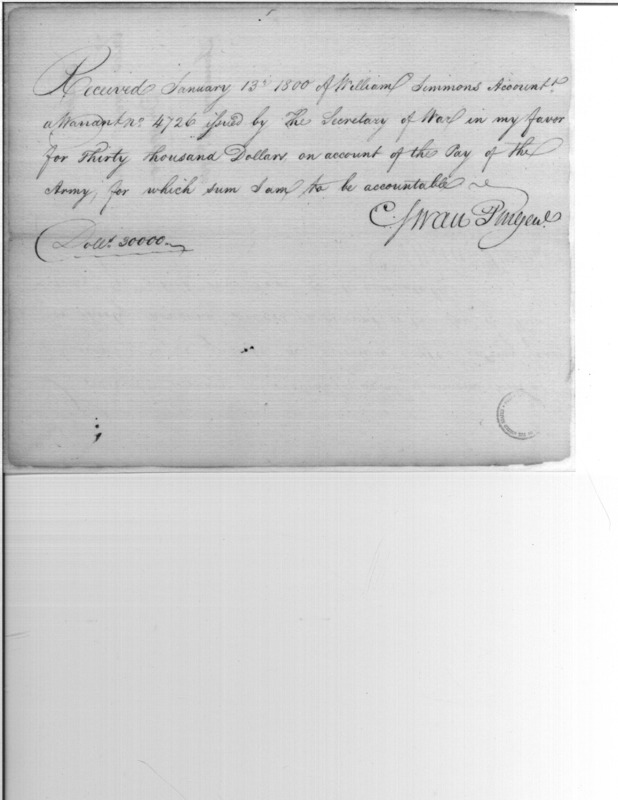 Received January 13th 1800 of William Simmons Accountt.
a Warrant no. 4726 issued by the Secretary of War in my favor
for Thirty thousand Dollars, on account of the Pay of the
Army, for which sum I am to be accountable
C. Swan PMGenl.
Dolls. 30000